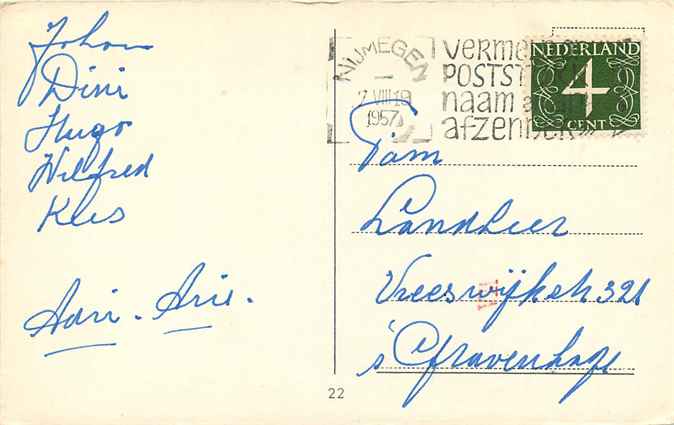 Johan
Dini
Hugo
Wilfred
Kees
Adri - Arie.
NIJMEGEN
7 VIII 19
1957
POSTST
naam
afzender
NEDERLAND
4
CENT
Fam
Landheer
Vreeswijkstr 321
's Gravenhage
22